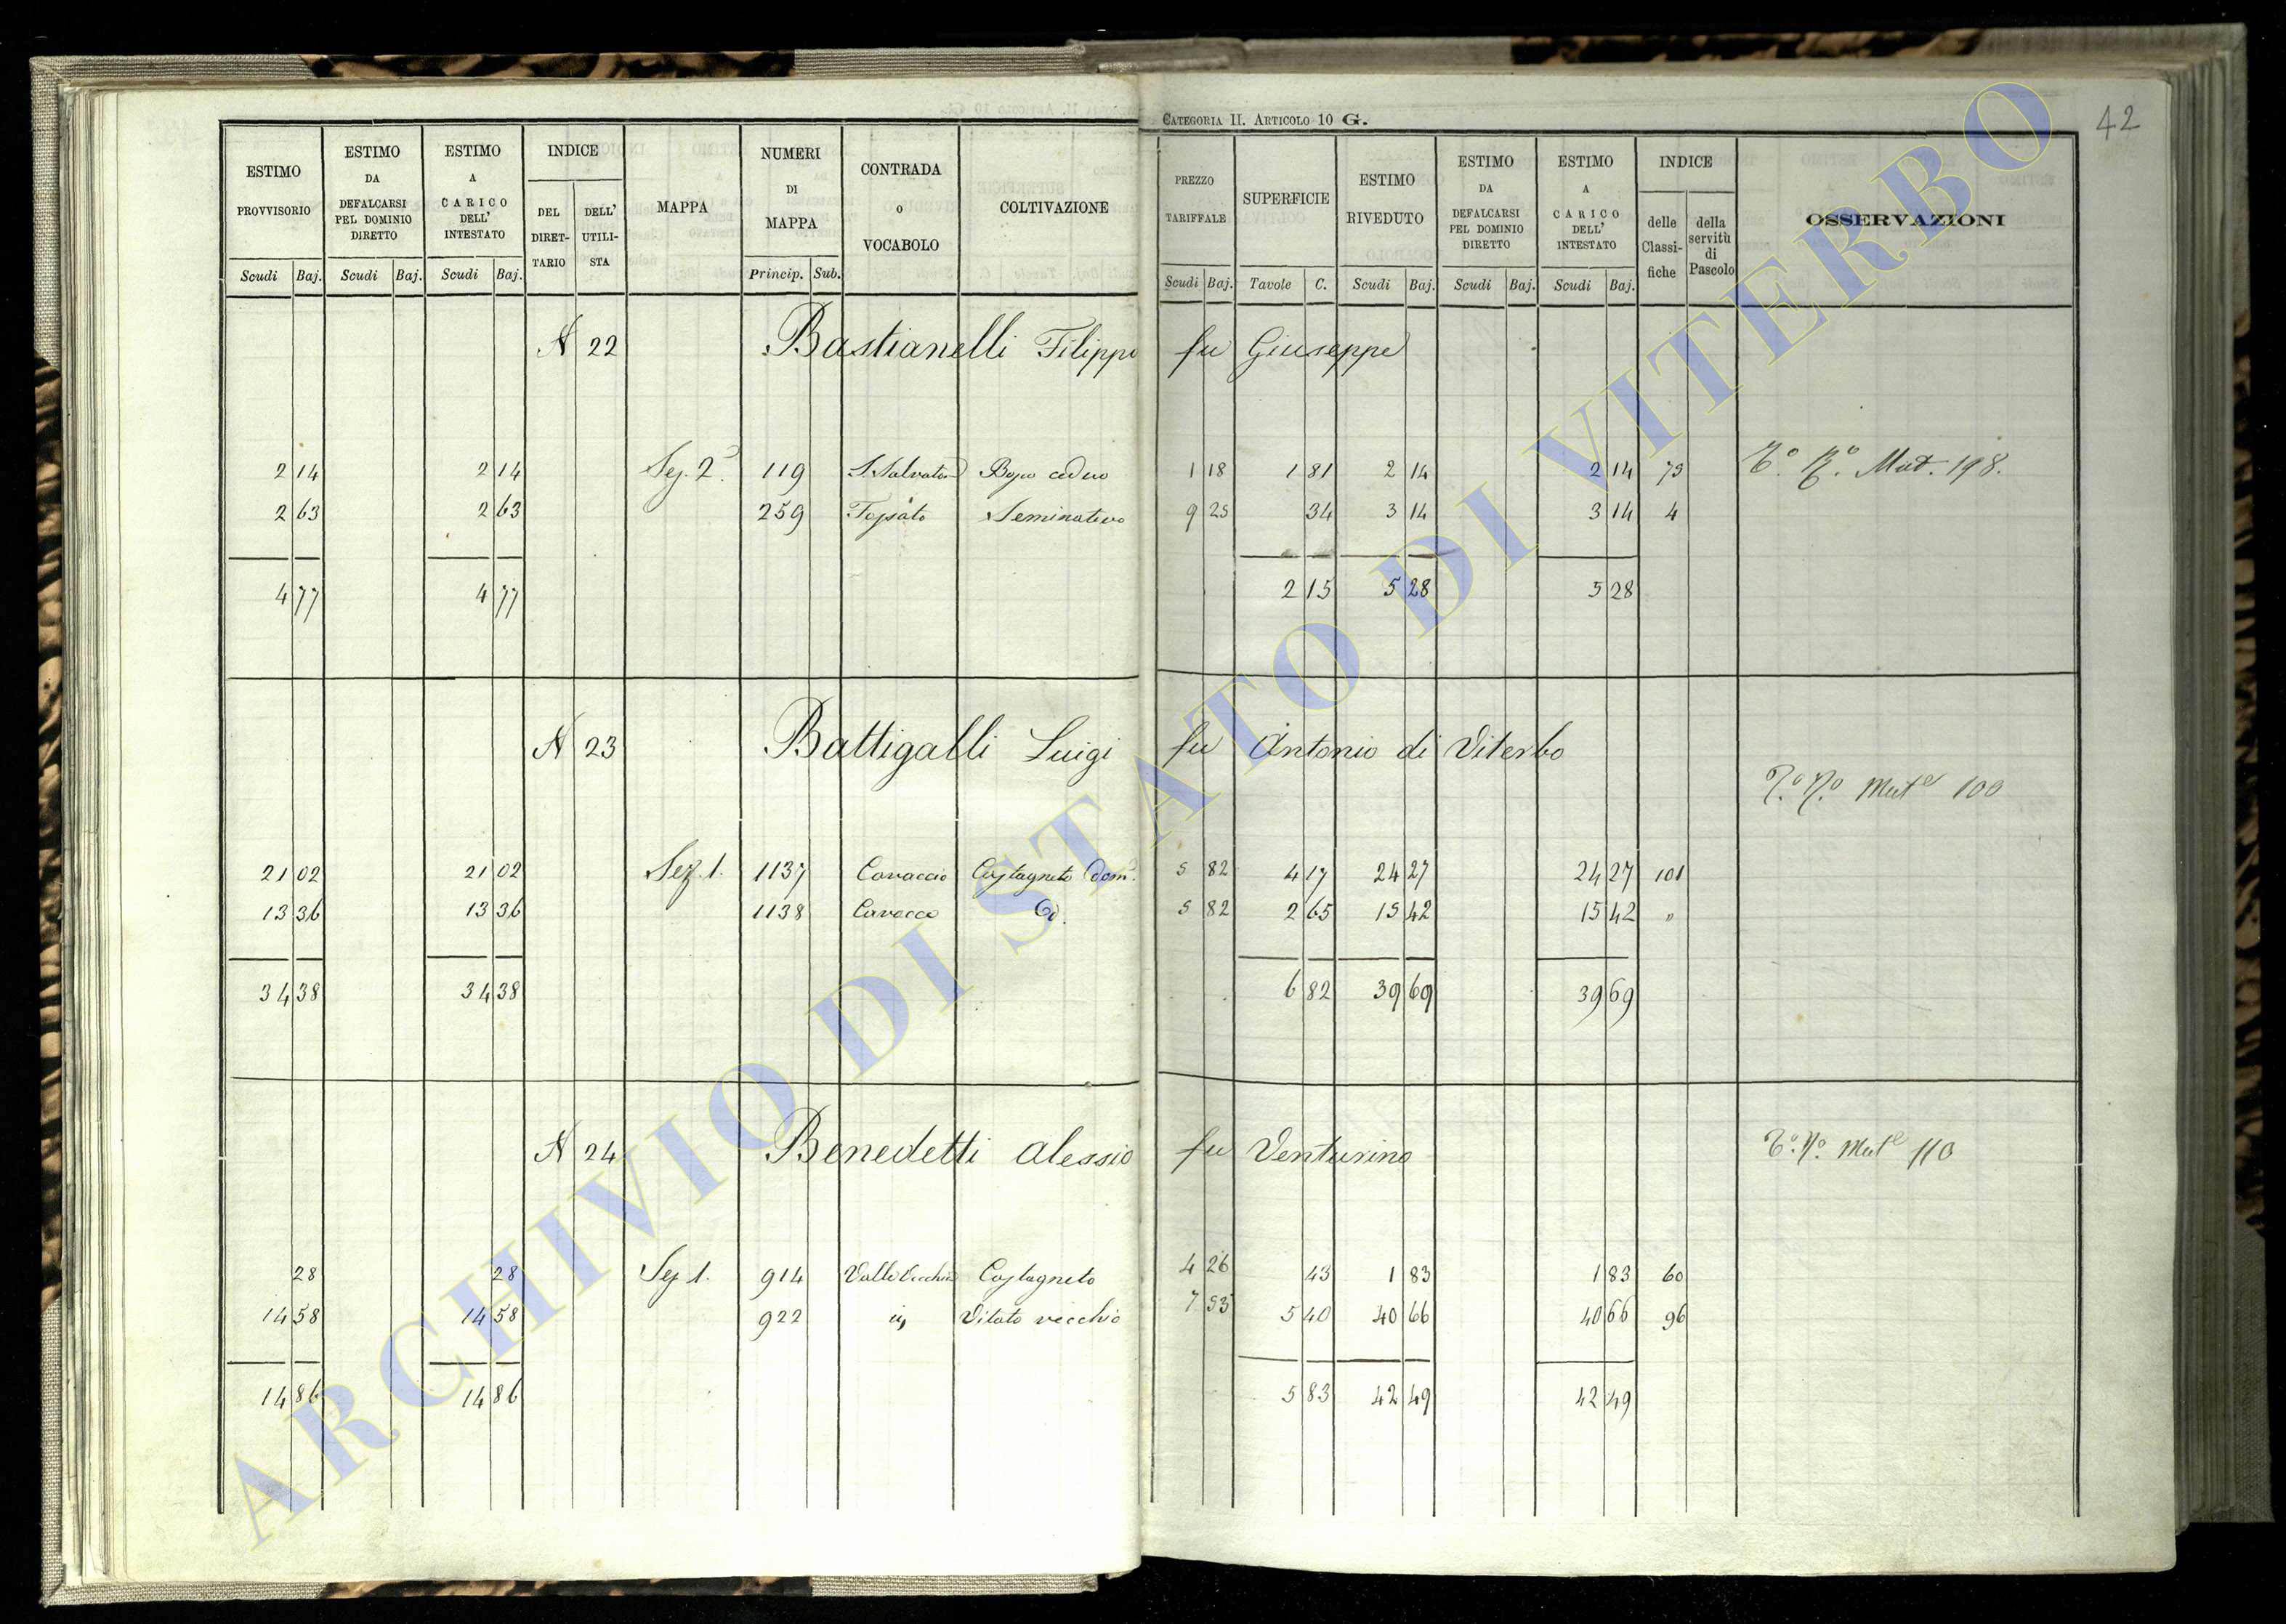 CATEGORIA II. ARTICOLO 10 G.
42
ESTIMO PROVVISORIO Scudi Baj.
ESTIMO DA DEFALCARSI PEL DOMINIO DIRETTO Scudi Baj.
ESTIMO A CARICO DELL' INTESTATO Scudi Baj.
INDICE DEL DIRET-TARIO DELL' UTILI-STA
MAPPA
NUMERI DI MAPPA Princip. Sub.
CONTRADA o VOCABOLO
COLTIVAZIONE
PREZZO TARIFFALE Scudi Baj.
SUPERFICIE Tavole C.
ESTIMO RIVEDUTO Scudi Baj.
ESTIMO DA DEFALCARSI PEL DOMINIO DIRETTO Scudi Baj.
ESTIMO A CARICO DELL' INTESTATO Scudi Baj.
INDICE delle Classi-fiche della servitù di Pascolo
OSSERVAZIONI
N 22 Bastianelli Filippo fu Giuseppe
2 14 2 14 Sez. 2ª 119 S. Salvatore Bosco ceduo 1 18 1 81 2 14 2 14 79 Mut. 198.
2 63 2 63 259 Fossato Seminativo 9 25 34 3 14 3 14 4
4 77 4 77 2 15 5 28 5 28
N 23 Battigalli Luigi fu Antonio di Viterbo
Mutᵉ 100
21 02 21 02 Sez. 1. 1137 Cavaccio Castagneto dom. 5 82 4 17 24 27 24 27 101
13 36 13 36 1138 Id. 5 82 2 65 15 42 15 42 "
34 38 34 38 6 82 39 69 39 69
N 24 Benedetti Alessio fu Venturino
Mutᵉ 110
28 28 Sez 1. 914 Valle Vecchia Castagneto 4 26 43 1 83 1 83 60
14 58 14 58 922 Vitato vecchio 7 53 5 40 40 66 40 66 96
14 86 14 86 5 83 42 49 42 49
ARCHIVIO DI STATO DI VITERBO